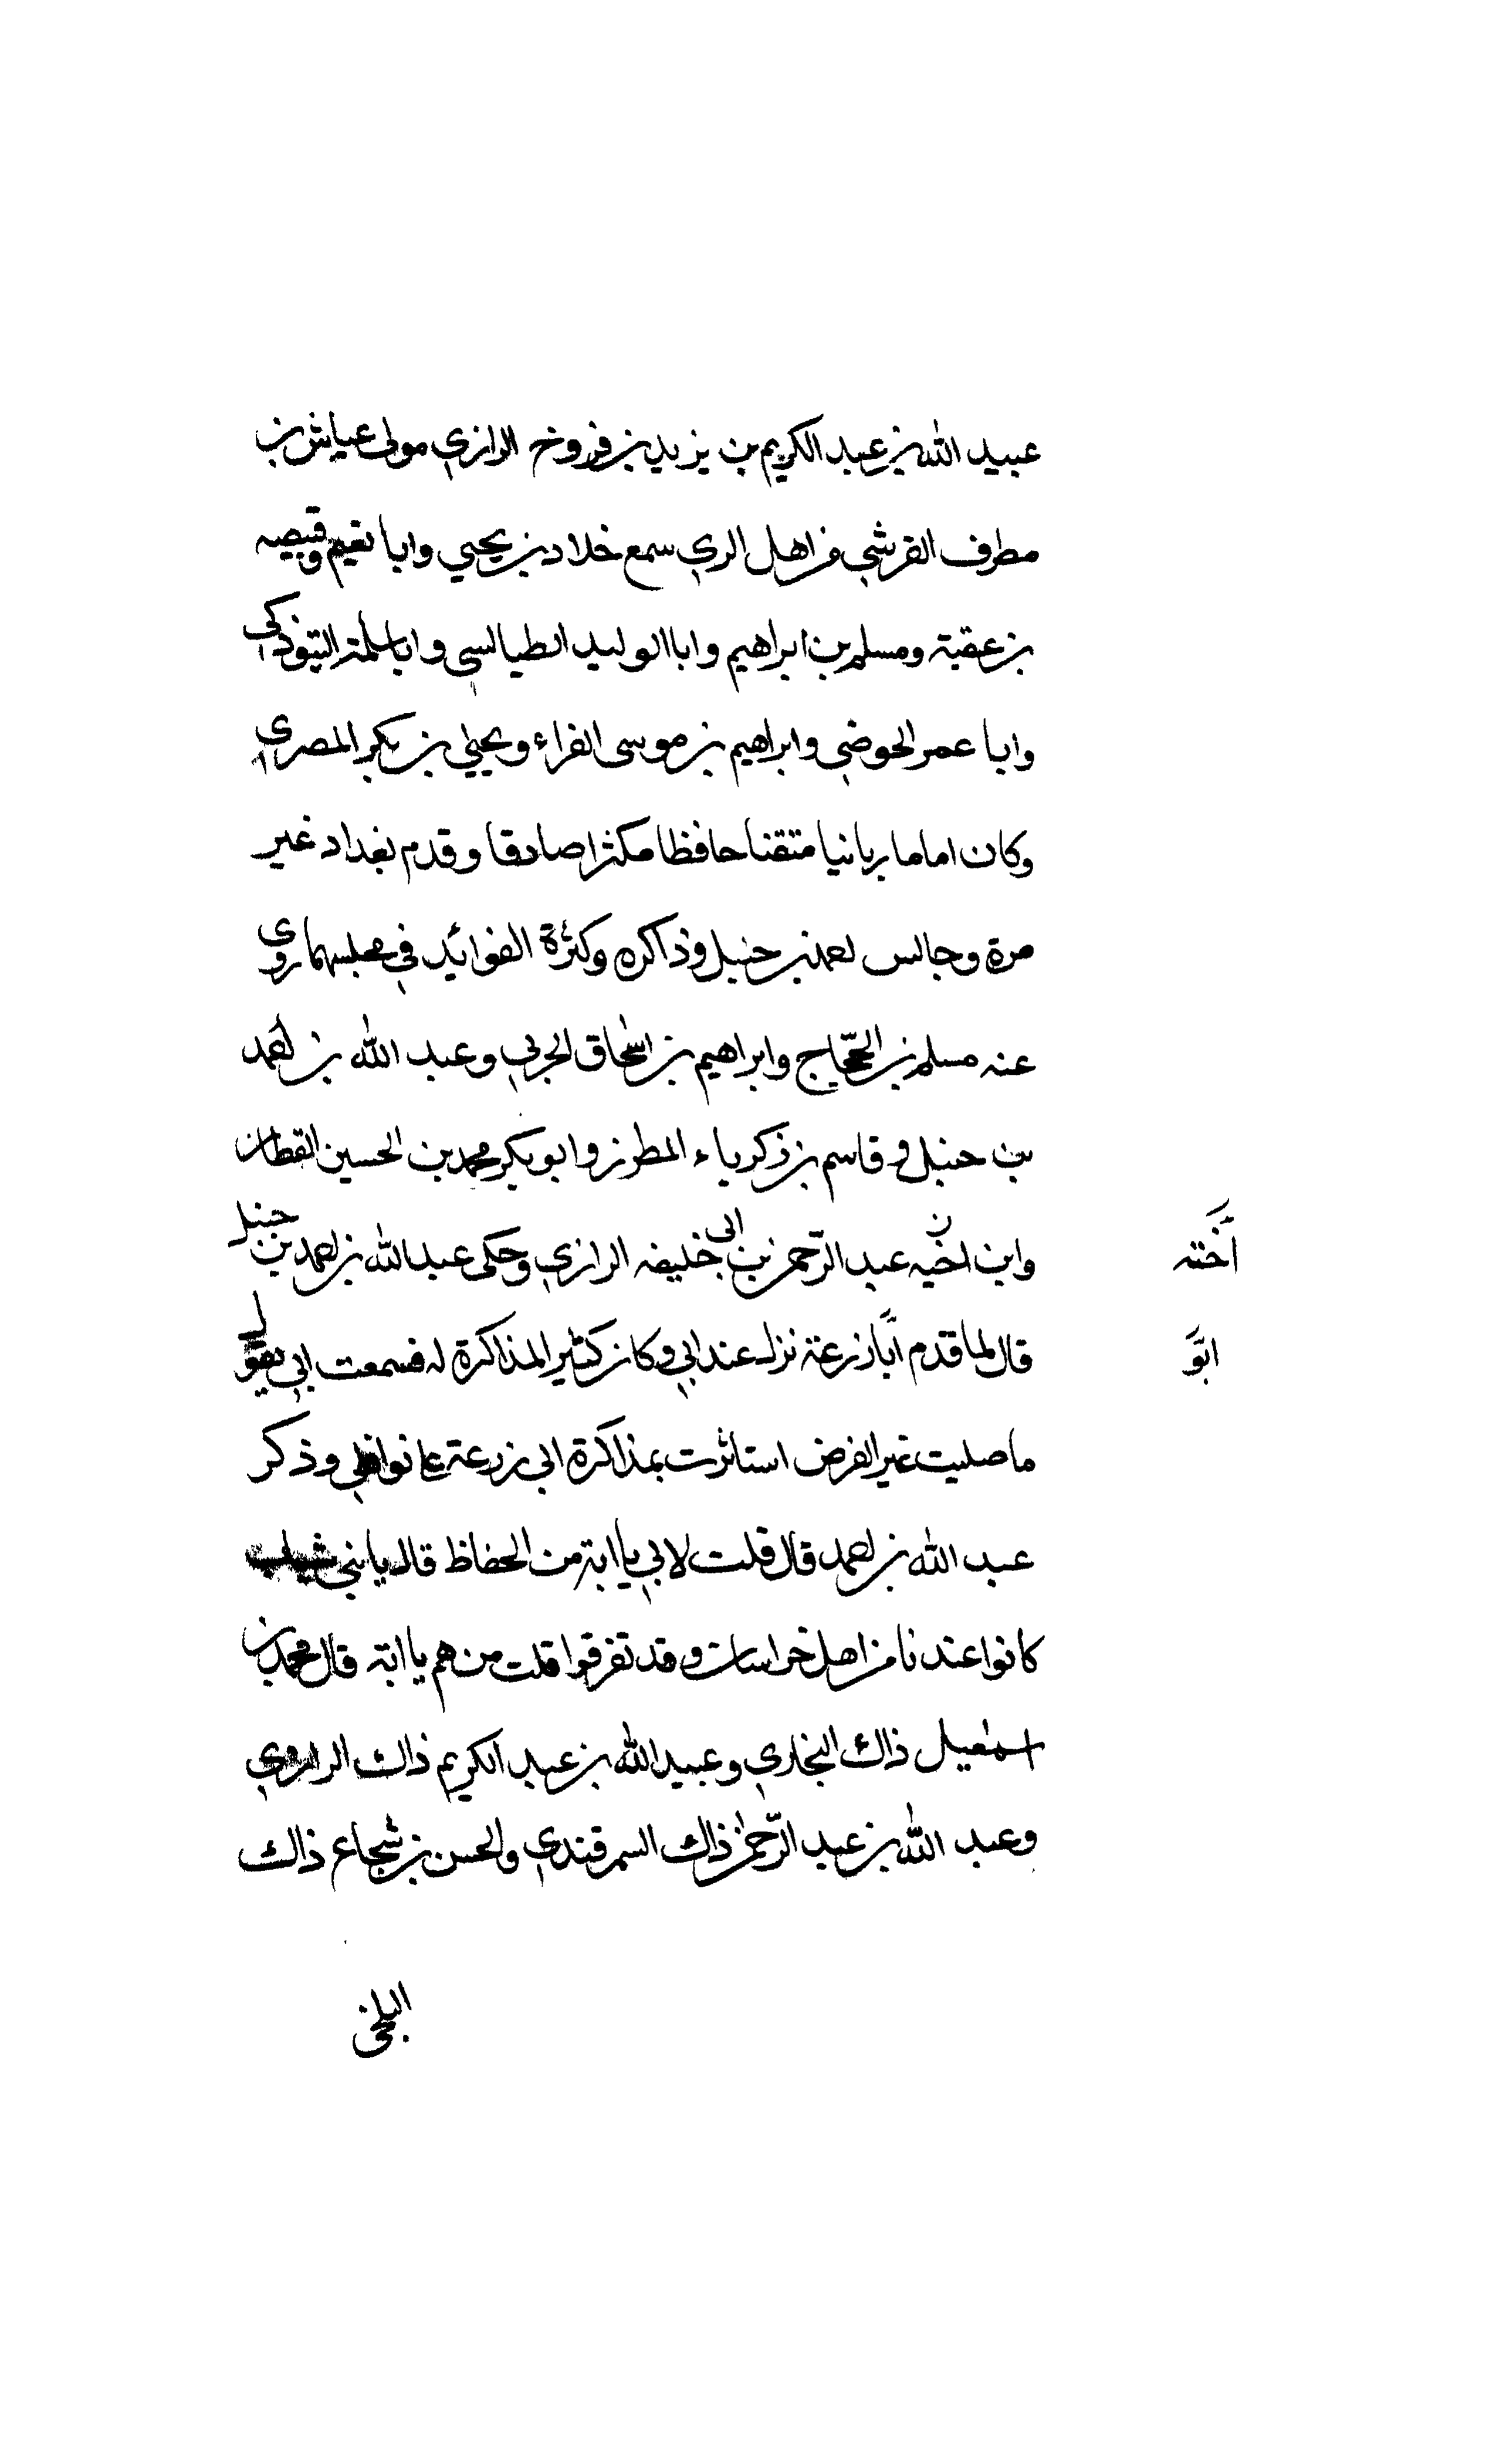 عبيد الله بن عبد الكريم بن يزيد بن فروخ الرازي مولى عياش بن
مطرف القرشي من اهل الري سمع خلاد بن يحيي وابا نعيم وقبيصه
بن عقبة ومسلم بن ابراهيم وابا الوليد الطيالسي وابا سلمة التبوذكي
وابا عمر الحوضي وابراهيم بن موسى الفراء ويحيي بن بكير المصري
وكان اماما ربانيا متقنا حافظا مكثرا صادقا وقدم بغداد غير
مرة وجالس احمد بن حنبل وذاكره وكثرة الفوائد في مجلسهما روي
عنه مسلم بن الحجّاج وابراهيم بن اسحاق الحربي وعبد الله بن احمد
بن حنبل و قاسم بن زكرياء المطرز وابو بكر محمد بن الحسين القطان
وابن اخيه عبد الرّحمن بن ابى خليفه الرازي وحكى عبد الله بن احمد بن حنبل
اَختنه
قال لما قدم اَبَا زرعة نزل عند ابي وكان كثير المذاكرة له فسمعت ابي يقول
ابَو
ما صليت غير الفرض استاثرت بمذاكرة ابي زرعة على نوافلي وذكر
عبد الله بن احمد قال قلت لابي يا ابة من الحفاظ قال يا بني شباب
كانوا عندنا من اهل خراسان وقد تفرقوا قلت من هم يا ابة قال محمد بن
اسمعيل ذاك البخاري وعبيد الله بن عبد الكريم ذاك الرازي
وعبد الله بن عبد الرّحمن ذاك السمرقندي والحسن بن شجاع ذاك
البلخى